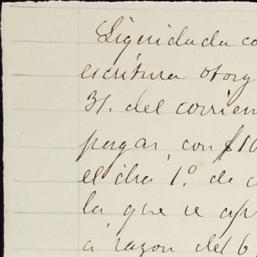 Liquidada co
escritura otorg
31. del corrien
pagar, con $10
el dia 1.º de
la que se ap
á razon del 6